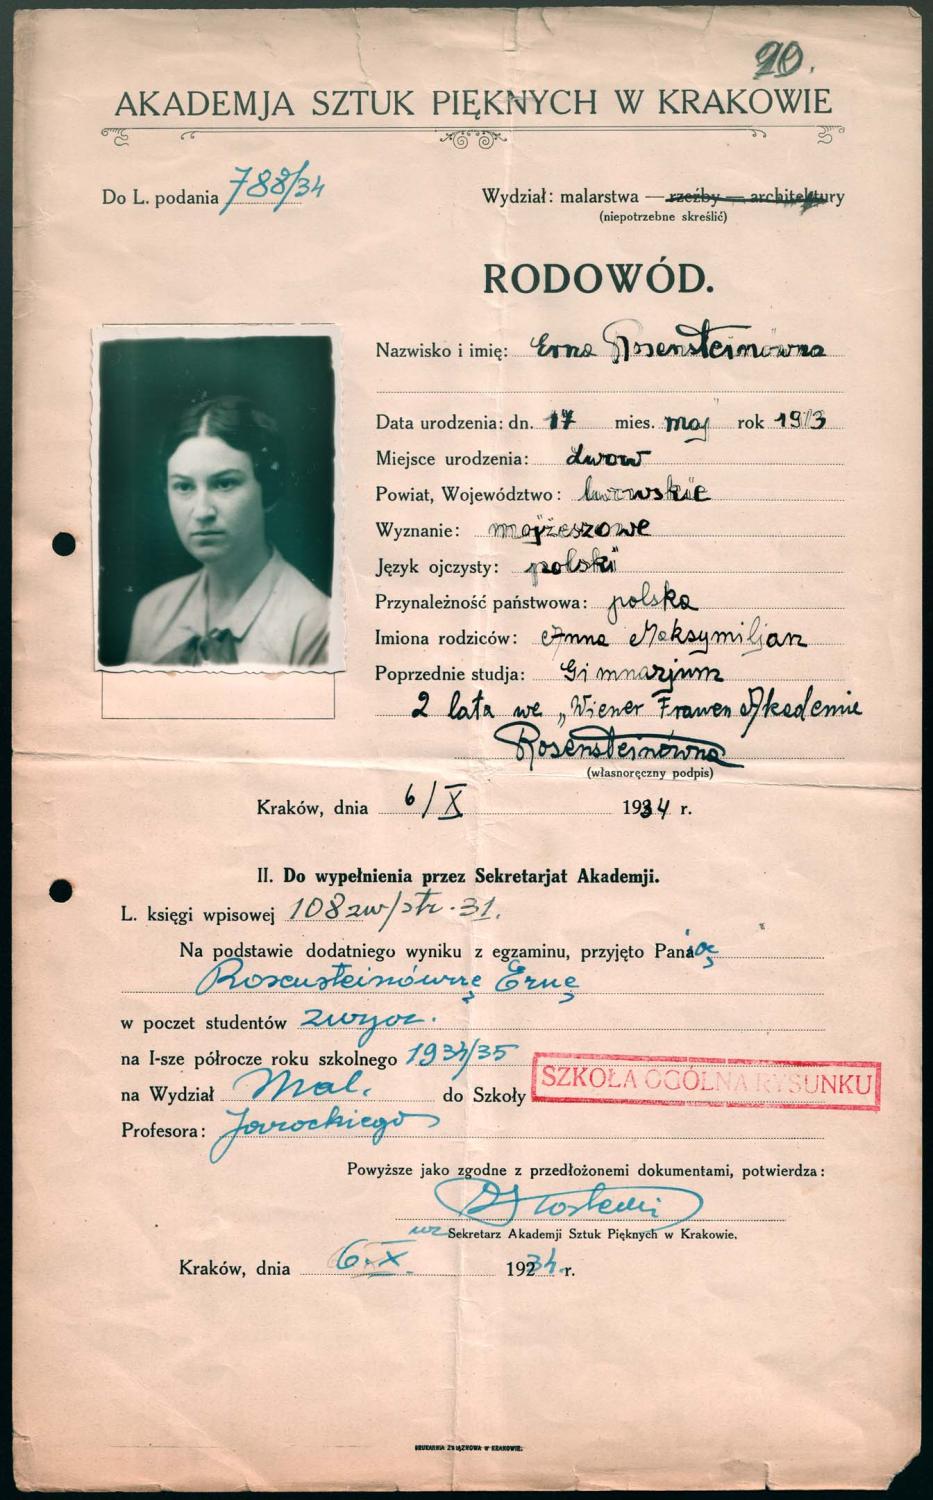 20.
AKADEMJA SZTUK PIĘKNYCH W KRAKOWIE
Do L. podania 788/34
Wydział: malarstwa — rzeźby — architektury
(niepotrzebne skreślić)
RODOWÓD.
Nazwisko i imię: Erna Rosensteinówna
Data urodzenia: dn. 17 mies. maj rok 1913
Miejsce urodzenia: Lwow
Powiat, Województwo: lwowskie
Wyznanie: mojżeszowe
Język ojczysty: polski
Przynależność państwowa: polska
Imiona rodziców: Anna Maksymiljan
Poprzednie studja: Gimnazjum
2 lata we „Wiener Frauen Akademie
Rosensteinówna
(własnoręczny podpis)
Kraków, dnia 6/X 1934 r.
II. Do wypełnienia przez Sekretarjat Akademji.
L. księgi wpisowej 108 zw/str. 31.
Na podstawie dodatniego wyniku z egzaminu, przyjęto Paną
Rosensteinównę Ernę
w poczet studentów zwycz.
na I-sze półrocze roku szkolnego 1934/35
na Wydział Mal. do Szkoły SZKOŁA OGÓLNA RYSUNKU
Profesora: Jarockiego
Powyższe jako zgodne z przedłożonemi dokumentami, potwierdza:
wz Sekretarz Akademji Sztuk Pięknych w Krakowie.
Kraków, dnia 6.X. 1934 r.
DRUKARNIA ZWIĄZKOWA W KRAKOWIE.